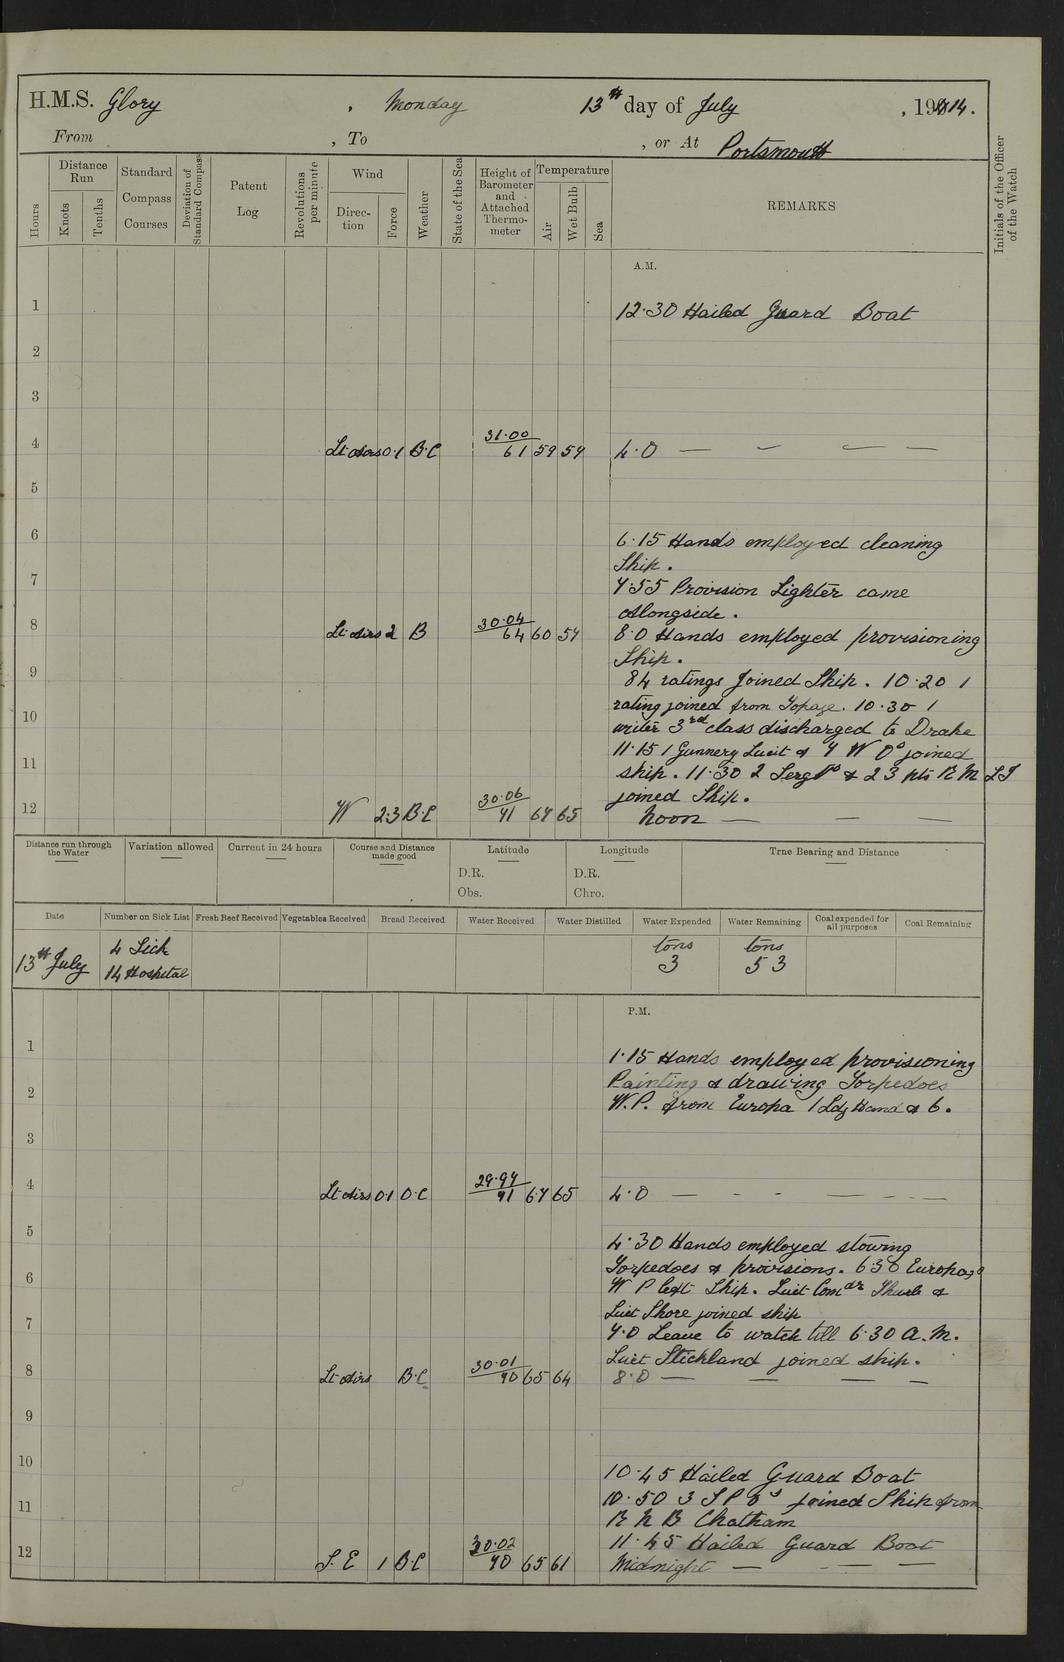 H.M.S. Glory, Monday 13th day of July, 1914.
From , To , or At Portsmouth
Hours
Distance Run
Knots
Tenths
Standard Compass Courses
Deviation of Standard Compass
Patent Log
Revolutions per minute
Wind
Direction
Force
Weather
State of the Sea
Height of Barometer and Attached Thermometer
Temperature
Air
Wet Bulb
Sea
REMARKS
Initials of the Officer of the Watch
A.M.
1 12.30 Hailed Guard Boat
2
3
4 Lt Airs 0.1 B.C 31.00 61 59 57 4.0 — — — —
5
6 6.15 Hands employed cleaning
Ship.
7 7.55 Provision Lighter came
alongside.
8 Lt Airs 2 B 30.04 64 60 57 8.0 Hands employed provisioning
Ship.
9 84 ratings Joined Ship. 10.20 1
rating joined from Topaze. 10.30 1
10 writer 3rd class discharged to Drake
11.15 1 Gunnery Lieut & 7 W Os joined
11 ship. 11.30 2 Sergts & 23 pts R M L I
joined Ship.
12 W 2.3 B.C 30.06 71 67 65 Noon — — —
Distance run through the Water
Variation allowed
Current in 24 hours
Course and Distance made good
Latitude
D.R.
Obs.
Longitude
D.R.
Chro.
True Bearing and Distance
Date
Number on Sick List
Fresh Beef Received
Vegetables Received
Bread Received
Water Received
Water Distilled
Water Expended
Water Remaining
Coal expended for all purposes
Coal Remaining
13th July
4 Sick
14 Hospital
tons
3
tons
53
P.M.
1 1.15 Hands employed provisioning
2 Painting & drawing Torpedoes
W.P. from Europa 1 Ldg Hand & 6.
3
4 Lt Airs 0.1 O.C 29.97 71 67 65 4.0 — - - — - —
5 4.30 Hands employed stowing
Torpedoes & provisions. 6.30 Europas
6 W P left Ship. Lieut Comdr &
Lieut Shore joined ship
7 7.0 Leave to watch till 6.30 A.M.
Lieut Stickland joined ship.
8 Lt Airs B.C 30.01 70 65 64 8.0 — — — —
9
10 10.45 Hailed Guard Boat
11 10.50 3 S P Os joined Ship from
R N B Chatham
11.45 Hailed Guard Boat
12 S.E 1 B.C 30.02 70 65 61 Midnight — - — —